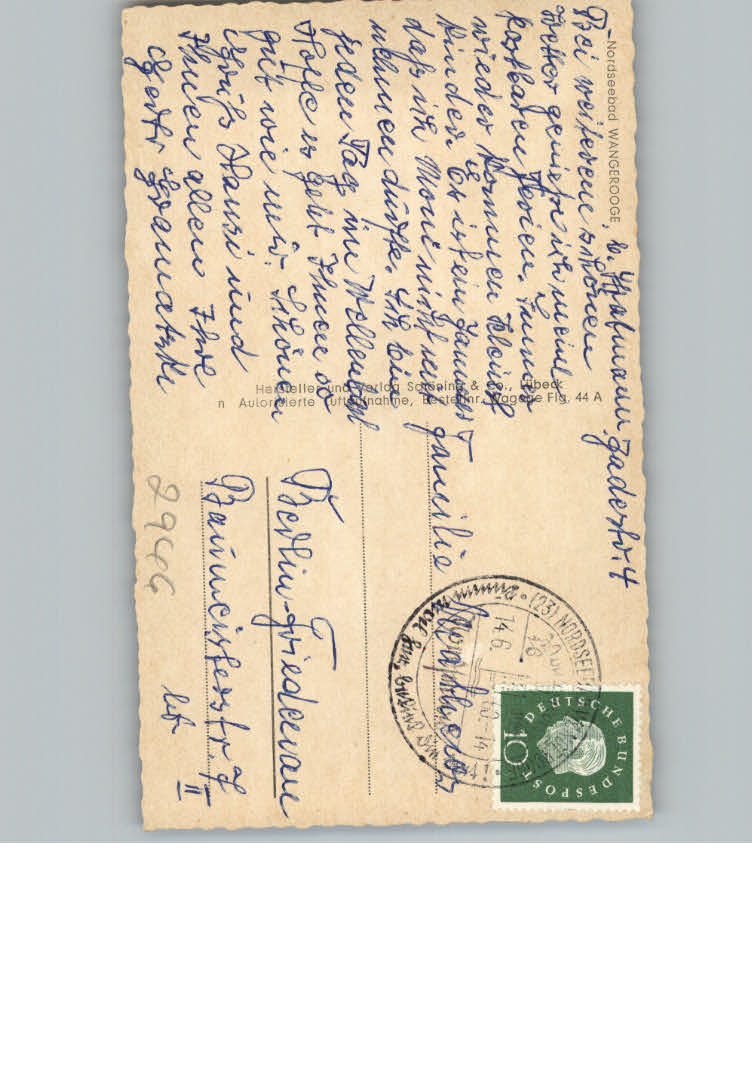 Nordseebad WANGEROOGE
Jadestr. 4
Bei weiterem schönen
Wetter genieße ich meine
kostbaren Ferien. Immer
wieder kommen kleine
Kinder u. Es ist ein Jammer
daß ich Moni nicht
nehmen durfte. Ich bin
jeden Tag im Wellenbad
Hoffe es geht Ihnen so
gut wie mir. Schönen
Gruß Hansi und
Ihnen allen Ihre
Hersteller und Verlag Schöning & Co., Lübeck
n Autorisierte Luftaufnahme, Bestellnr. Wagooge Flg. 44 A
Familie
Berlin-Friedenau
Baumeisterstr. 7
II
2944G
(23) NORDSEEB
14.6
DEUTSCHE BUNDESPOST
10